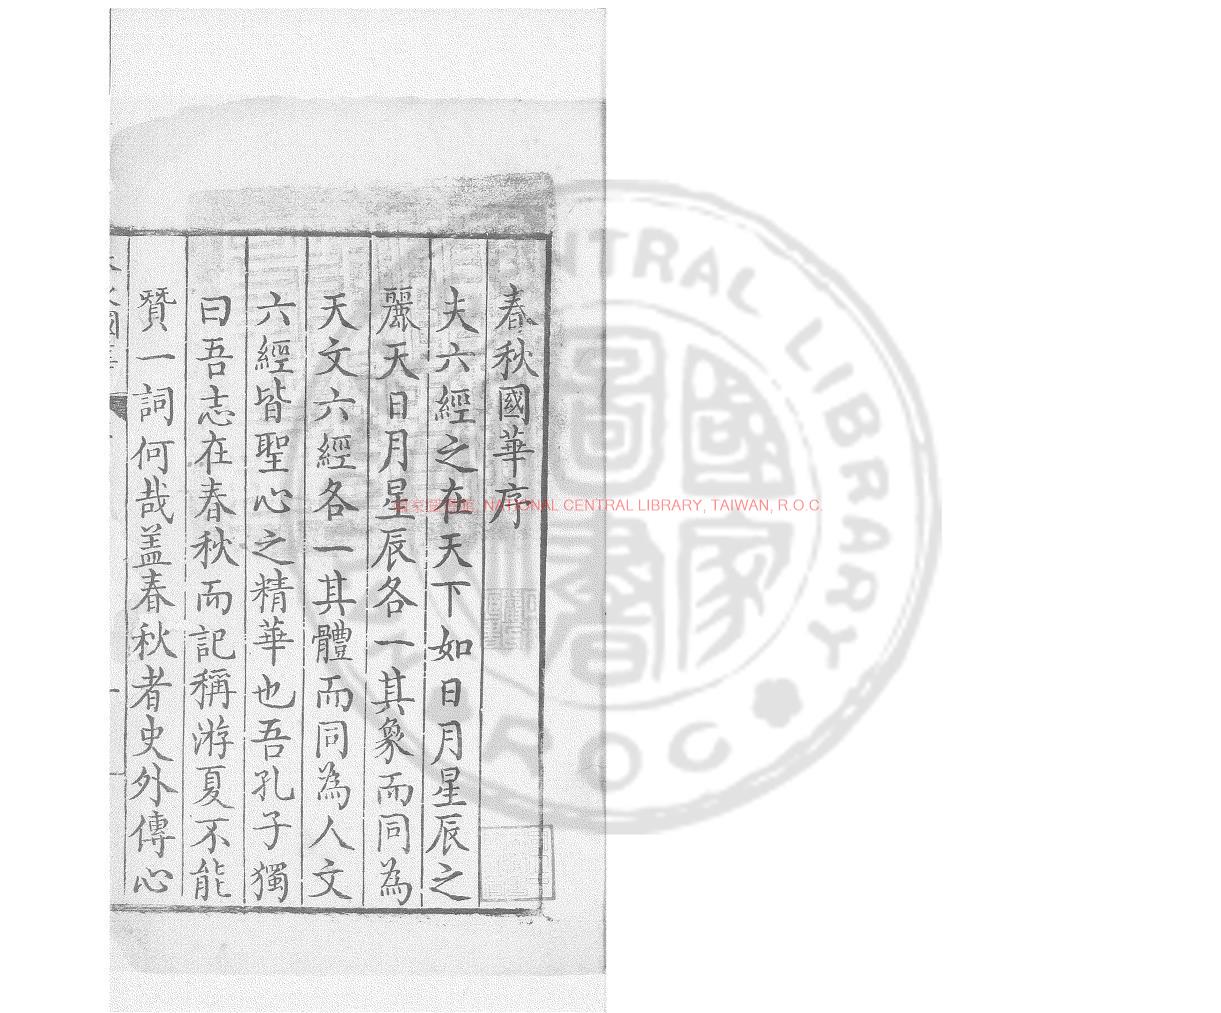 春秋國華序
夫六經之在天下如日月星辰之
麗天日月星辰各一其象而同為
天文六經各一其體而同為人文
六經皆聖心之精華也吾孔子獨
曰吾志在春秋而記稱游夏不能
贊一詞何哉盖春秋者史外傳心
國家圖書館, NATIONAL CENTRAL LIBRARY, TAIWAN, R.O.C.
CENTRAL LIBRARY
ROC
國家圖書